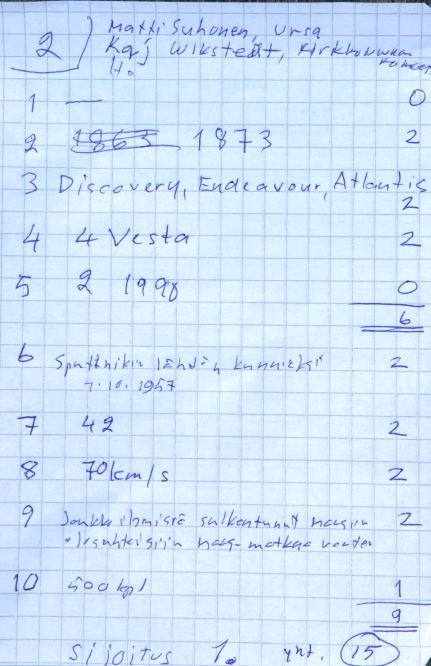 2) Matti Suhonen, Ursa
Kaj Wikstedt, Kirkkonummen
H. Komeetta
1 — 0
2 1863 1873 2
3 Discovery, Endeavour, Atlantis
2
4 4 Vesta 2
5 2 1998 0
6
6 Sputnikin lähdön kunniaksi 2
4.10.1957
7 42 2
8 70km/s 2
9 Joukko ihmisiä sulkeutunut 2
olosuhteisiin mars-matkaa varten
10 500 kpl 1
9
Sijoitus 1. yht. 15